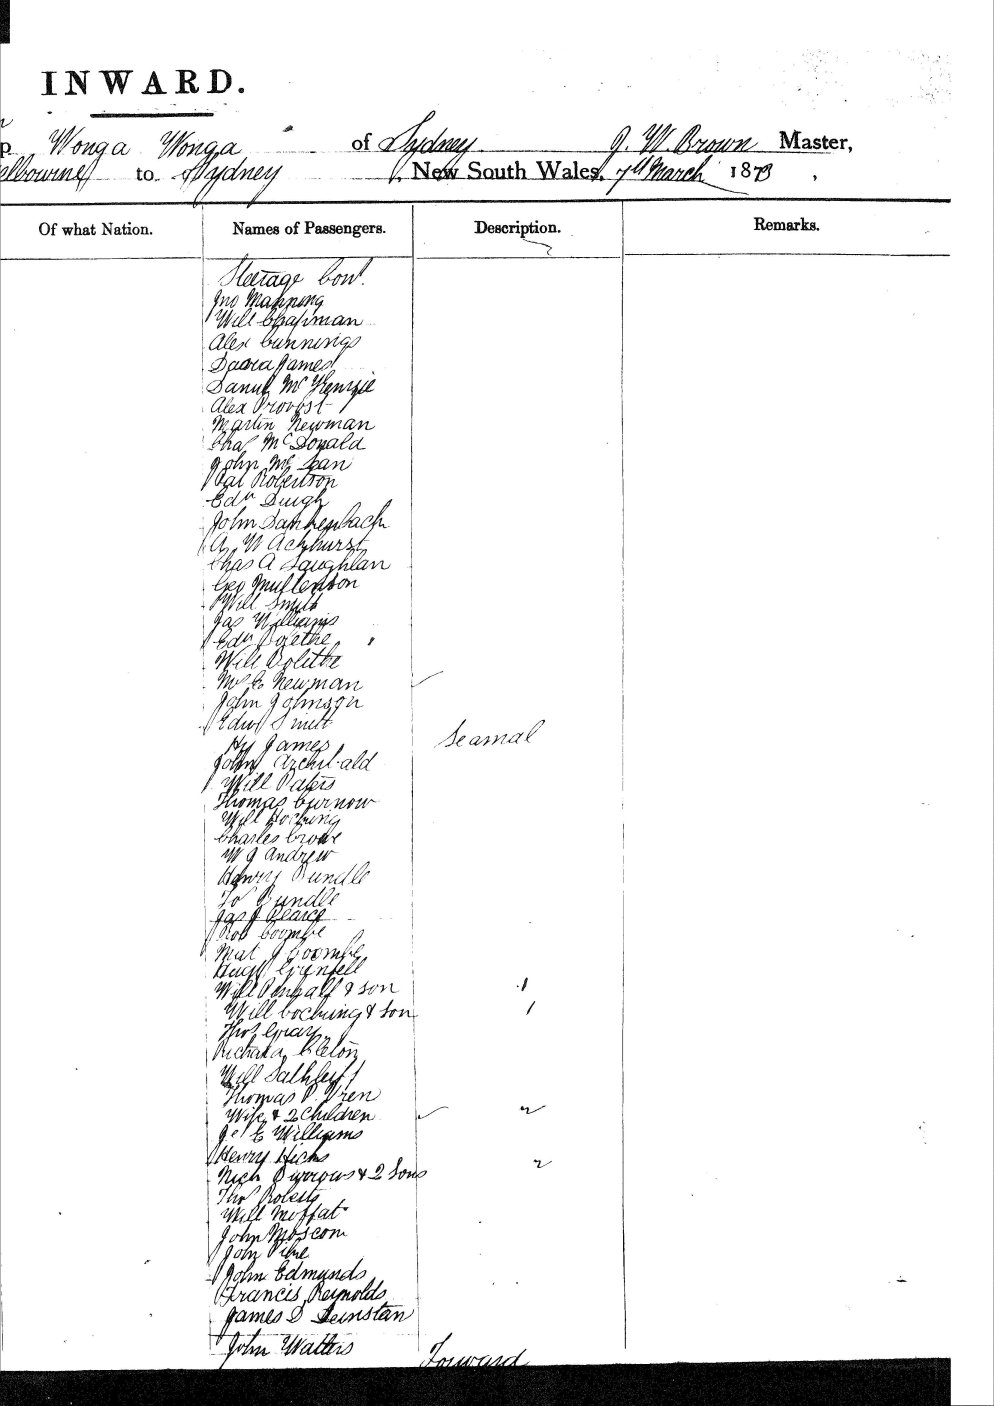 INWARD.
Wonga Wonga of Sydney J. W. Brown Master,
elbourne to Sydney, New South Wales, 7th March 1873,
Of what Nation. Names of Passengers. Description. Remarks.
Steerage Cont.
Jno Manning
Will Chapman
Alex Cunnings
James
Danl McKenzie
Alex Provost
Martin Newman
Chas McDonald
John McLean
Pat Robertson
Edw
John Dannenbach
A. W Ackhurst
Chas A Laughlan
Geo
Will Smith
Jas Williams
Edw Bolethe
Will Bolithe
Mrs E Newman
John Johnson
Edw Smith
Hy James Seamal
John Archibald
Will Paters
Thomas Curnow
Will Hocking
Charles Crowe
W J Andrew
Henry Rundle
Jo Rundle
Jas J Pearce
Rob Coombe
Mat J Coombe
Hugh Grenfell
Will & son 1
Will & son 1
Thos Gray
Richard
Will
Thomas P. Wren
Wife & 2 Children 2
E Williams
Henry Hicks
Nich Burrows & 2 Sons 2
Thos Roberts
Will Moffat
John Moscom
John
John Edmunds
Francis Reynolds
James D Leinstan
John Walters Forward